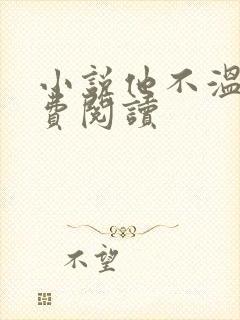 小說他不溫
費閱讀
不望